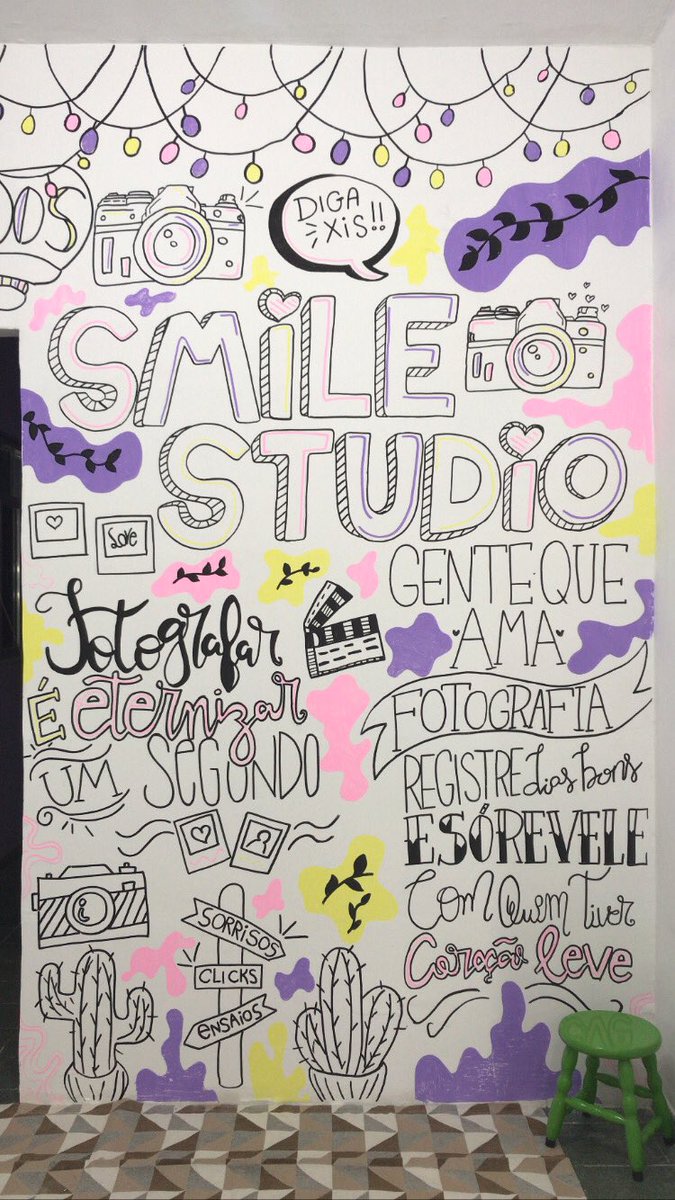 DIGA
XIS!!
SMILE
STUDIO
Love
Fotografar
É eternizar
UM SEGUNDO
GENTE QUE
AMA
FOTOGRAFIA
REGISTRE dias bons
E SÓ REVELE
Com Quem Tiver
Coração leve
SORRISOS
CLICKS
ENSAIOS